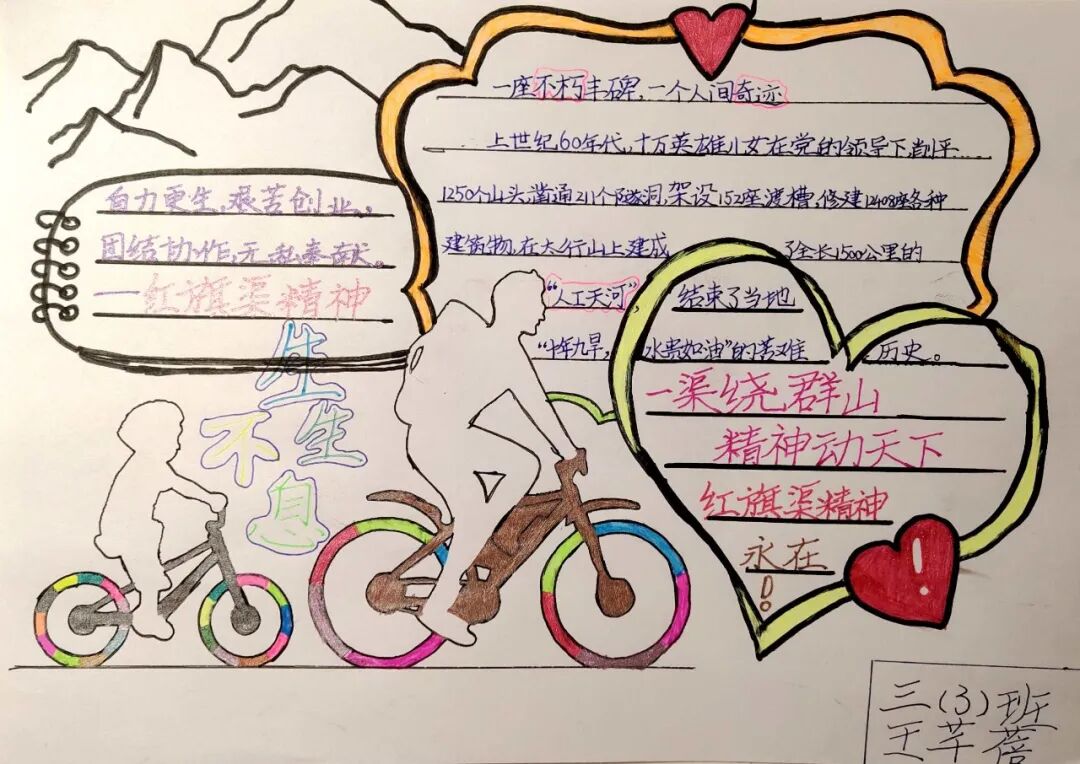 一座不朽丰碑，一个人间奇迹
上世纪60年代，十万英雄儿女在党的领导下，削平
1250个山头，凿通211个隧洞，架设152座渡槽，修建12408座各种
建筑物，在太行山上建成了全长1500公里的
“人工天河”，结束了当地
“十年九旱，水贵如油”的苦难历史。
自力更生，艰苦创业，
团结协作，无私奉献。
—红旗渠精神
生生
不息
一渠绕群山
精神动天下
红旗渠精神
永在！
三（3）班
王芊蓓